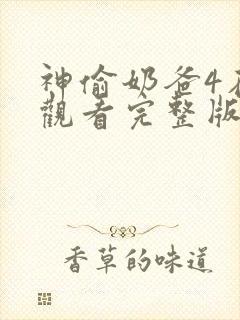 神偷奶爸4在
觀看完整版
香草的味道